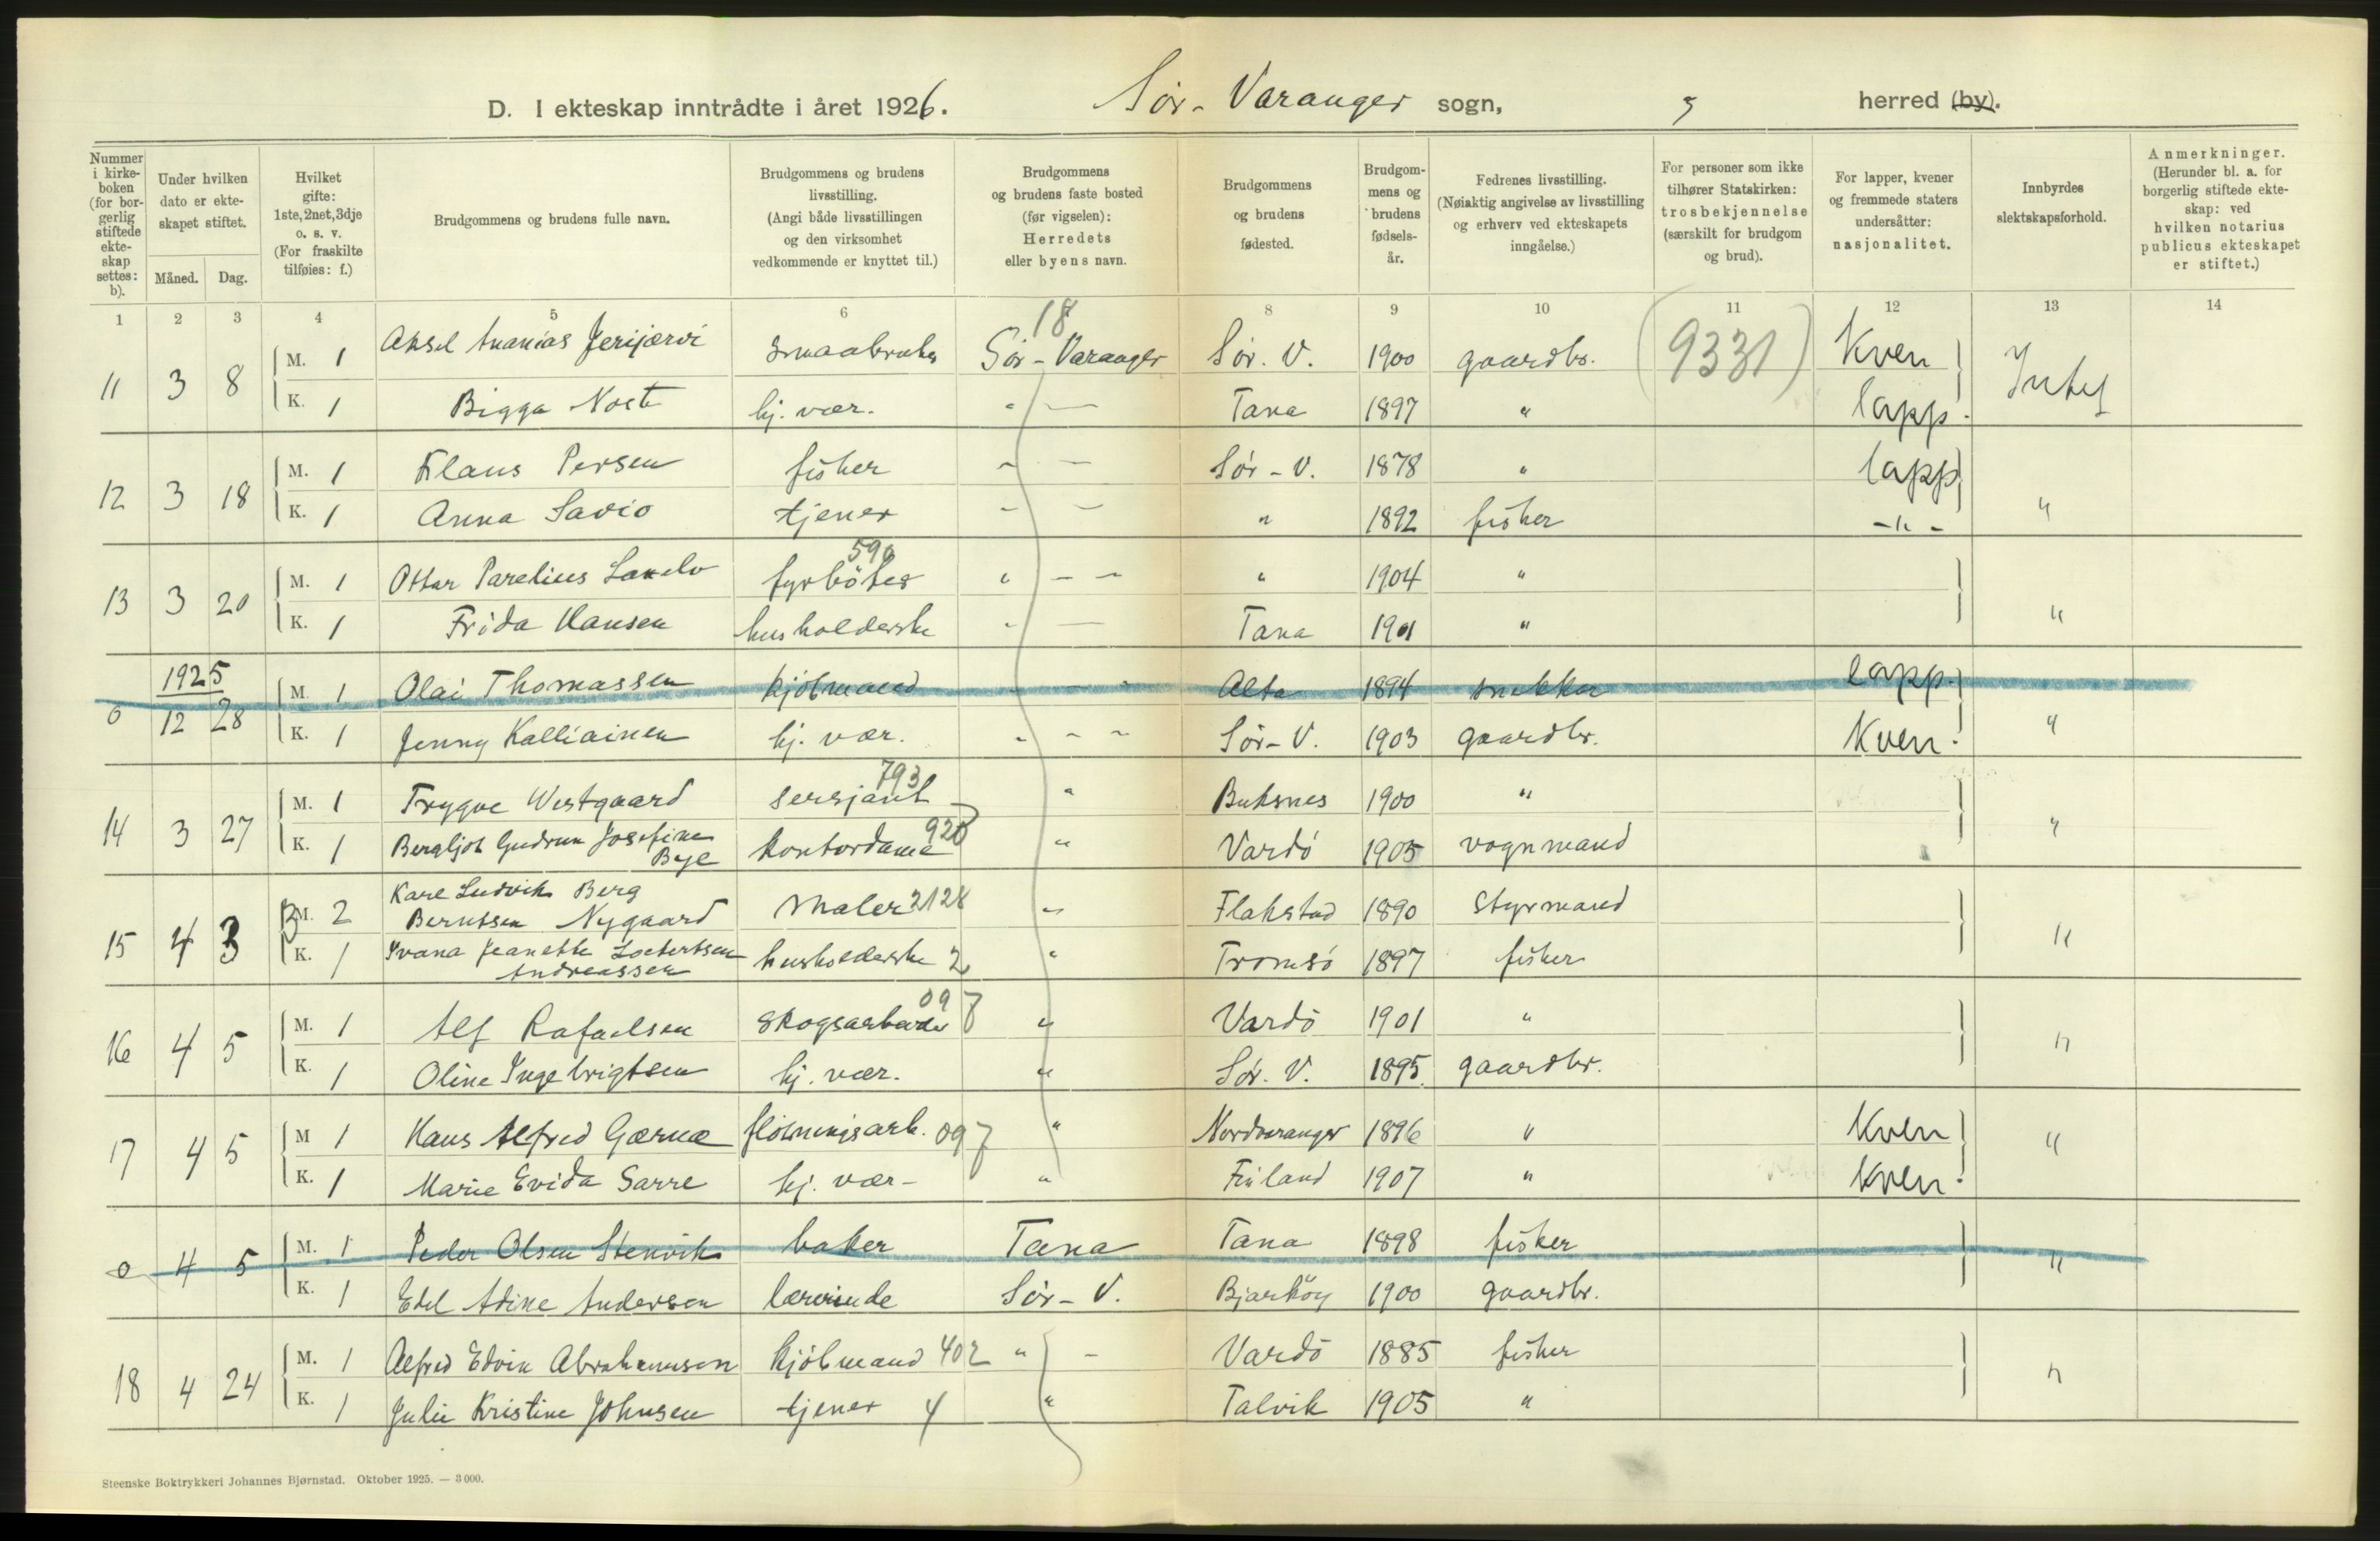 D. I ekteskap inntrådte i året 1926. Sør-Varanger sogn, herred (by).
Nummer i kirkeboken (for borgerlig stiftede ekteskap settes: b).
Under hvilken dato er ekteskapet stiftet.
Måned. Dag.
Hvilket gifte: 1ste, 2net, 3dje o. s. v. (For fraskilte tilføies: f.)
Brudgommens og brudens fulle navn.
Brudgommens og brudens livsstilling. (Angi både livsstillingen og den virksomhet vedkommende er knyttet til.)
Brudgommens og brudens faste bosted (før vigselen): Herredets eller byens navn.
Brudgommens og brudens fødested.
Brudgommens og brudens fødselsår.
Fedrenes livsstilling. (Nøiaktig angivelse av livsstilling og erhverv ved ekteskapets inngåelse.)
For personer som ikke tilhører Statskirken: trosbekjennelse (særskilt for brudgom og brud).
For lapper, kvener og fremmede staters undersåtter: nasjonalitet.
Innbyrdes slektskapsforhold.
Anmerkninger. (Herunder bl. a. for borgerlig stiftede ekteskap: ved hvilken notarius publicus ekteskapet er stiftet.)
1 2 3 4 5 6 8 9 10 11 12 13 14
18
11 3 8 M. 1 Aksel Ananias Jerijærvi smaabruker Sør-Varanger Sør. V. 1900 gaardbr. (9331) Kven Intet
K. 1 Bigga Noste hj. vær. " — Tana 1897 " lapp.
12 3 18 M. 1 Klaus Persen fisker " — Sør-V. 1878 " lapp
K. 1 Anna Savio tjener " — " 1892 fisker -"- "
590
13 3 20 M. 1 Ottar Parelius fyrbøter " — " 1904 "
K. 1 Frida Hansen husholderske " — Tana 1901 " "
1925
0 12 28 M. 1 Olai Thomassen kjølmand " Alta 1894 snekker lapp.
K. 1 Jenny Kalliainen hj. vær. " — Sør-V. 1903 gaardbr. Kven. "
793
14 3 27 M. 1 Trygve Westgaard sersjant " Buksnes 1900 "
K. 1 Bergljot Gudrun Josefine Bye kontordame 920 " Vardø 1905 vognmand "
15 4 3 M. 2 Karl Ludvik Berg Berntsen Nygaard Maler 2128 " Flakstad 1890 Styrmand
K. 1 Ivana Jeanette Andreassen husholderske 2 " Tromsø 1897 fisker "
16 4 5 M. 1 Alf Rafaelsen skogsarbeider 097 " Vardø 1901 "
K. 1 Oline Ingebrigtsen hj. vær. " Sør. V. 1895 gaardbr. "
17 4 5 M 1 Hans Alfred Gærna fløtningsarb. 097 " Nordvaranger 1896 " Kven "
K. 1 Marie Evida Sarre hj. vær- " Finland 1907 " Kven.
0 4 5 M. 1 Peder Olsen Stenvik baker Tana Tana 1898 fisker
K. 1 Edel Adine Andersen lærerinde Sør-V. Bjarkøy 1900 gaardbr. "
18 4 24 M. 1 Alfred Edvin Abrahamsen kjølmand 402 " - Vardø 1885 fisker
K. 1 Julie Kristine Johnsen tjener 4 " Talvik 1905 " "
Steenske Boktrykkeri Johannes Bjørnstad. Oktober 1925. — 3 000.